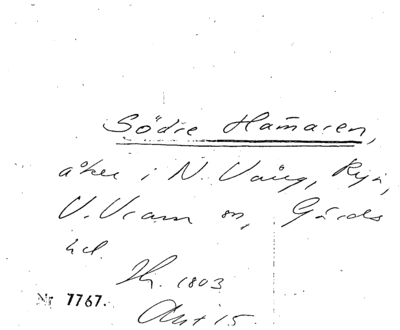 Södre Hamaren,
åker i N. Vång, Rya,
V. Vram sn, Gärds
hd.
1803
Nr 7767.
Akt 15.